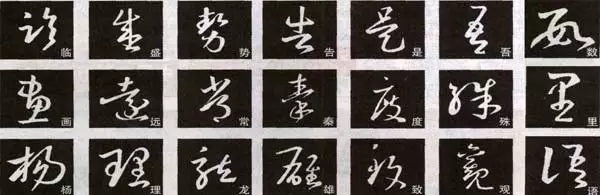 临 盛 势 告 是 吾 数
画 远 常 秦 度 殊 里
杨 理 龙 雄 致 观 语